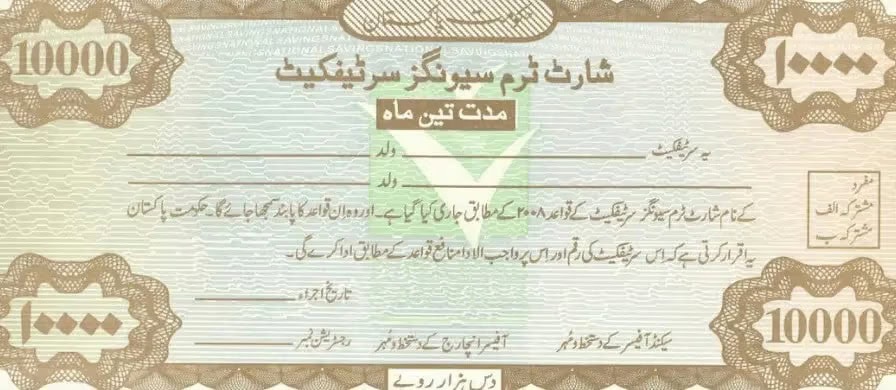 حکومت پاکستان
10000
۱۰۰۰۰
NATIONAL SAVINGS
شارٹ ٹرم سیونگز سرٹیفکیٹ
مدت تین ماہ
یہ سرٹیفکیٹ ولد
ولد
مفرد
مشترکہ الف
مشترکہ ب
کے نام شارٹ ٹرم سیونگز سرٹیفکیٹ کے قواعد ۲۰۰۸ کے مطابق جاری کیا گیا ہے۔ اور وہ ان قواعد کا پابند سمجھا جائے گا۔ حکومت پاکستان
یہ اقرار کرتی ہے کہ اس سرٹیفکیٹ کی رقم اور اس پر واجب الادا منافع قواعد کے مطابق ادا کرے گی۔
تاریخ اجراء
سیکنڈ آفیسر کے دستخط و مُہر آفیسر انچارج کے دستخط و مُہر رجسٹریشن نمبر
۱۰۰۰۰
10000
دس ہزار روپے